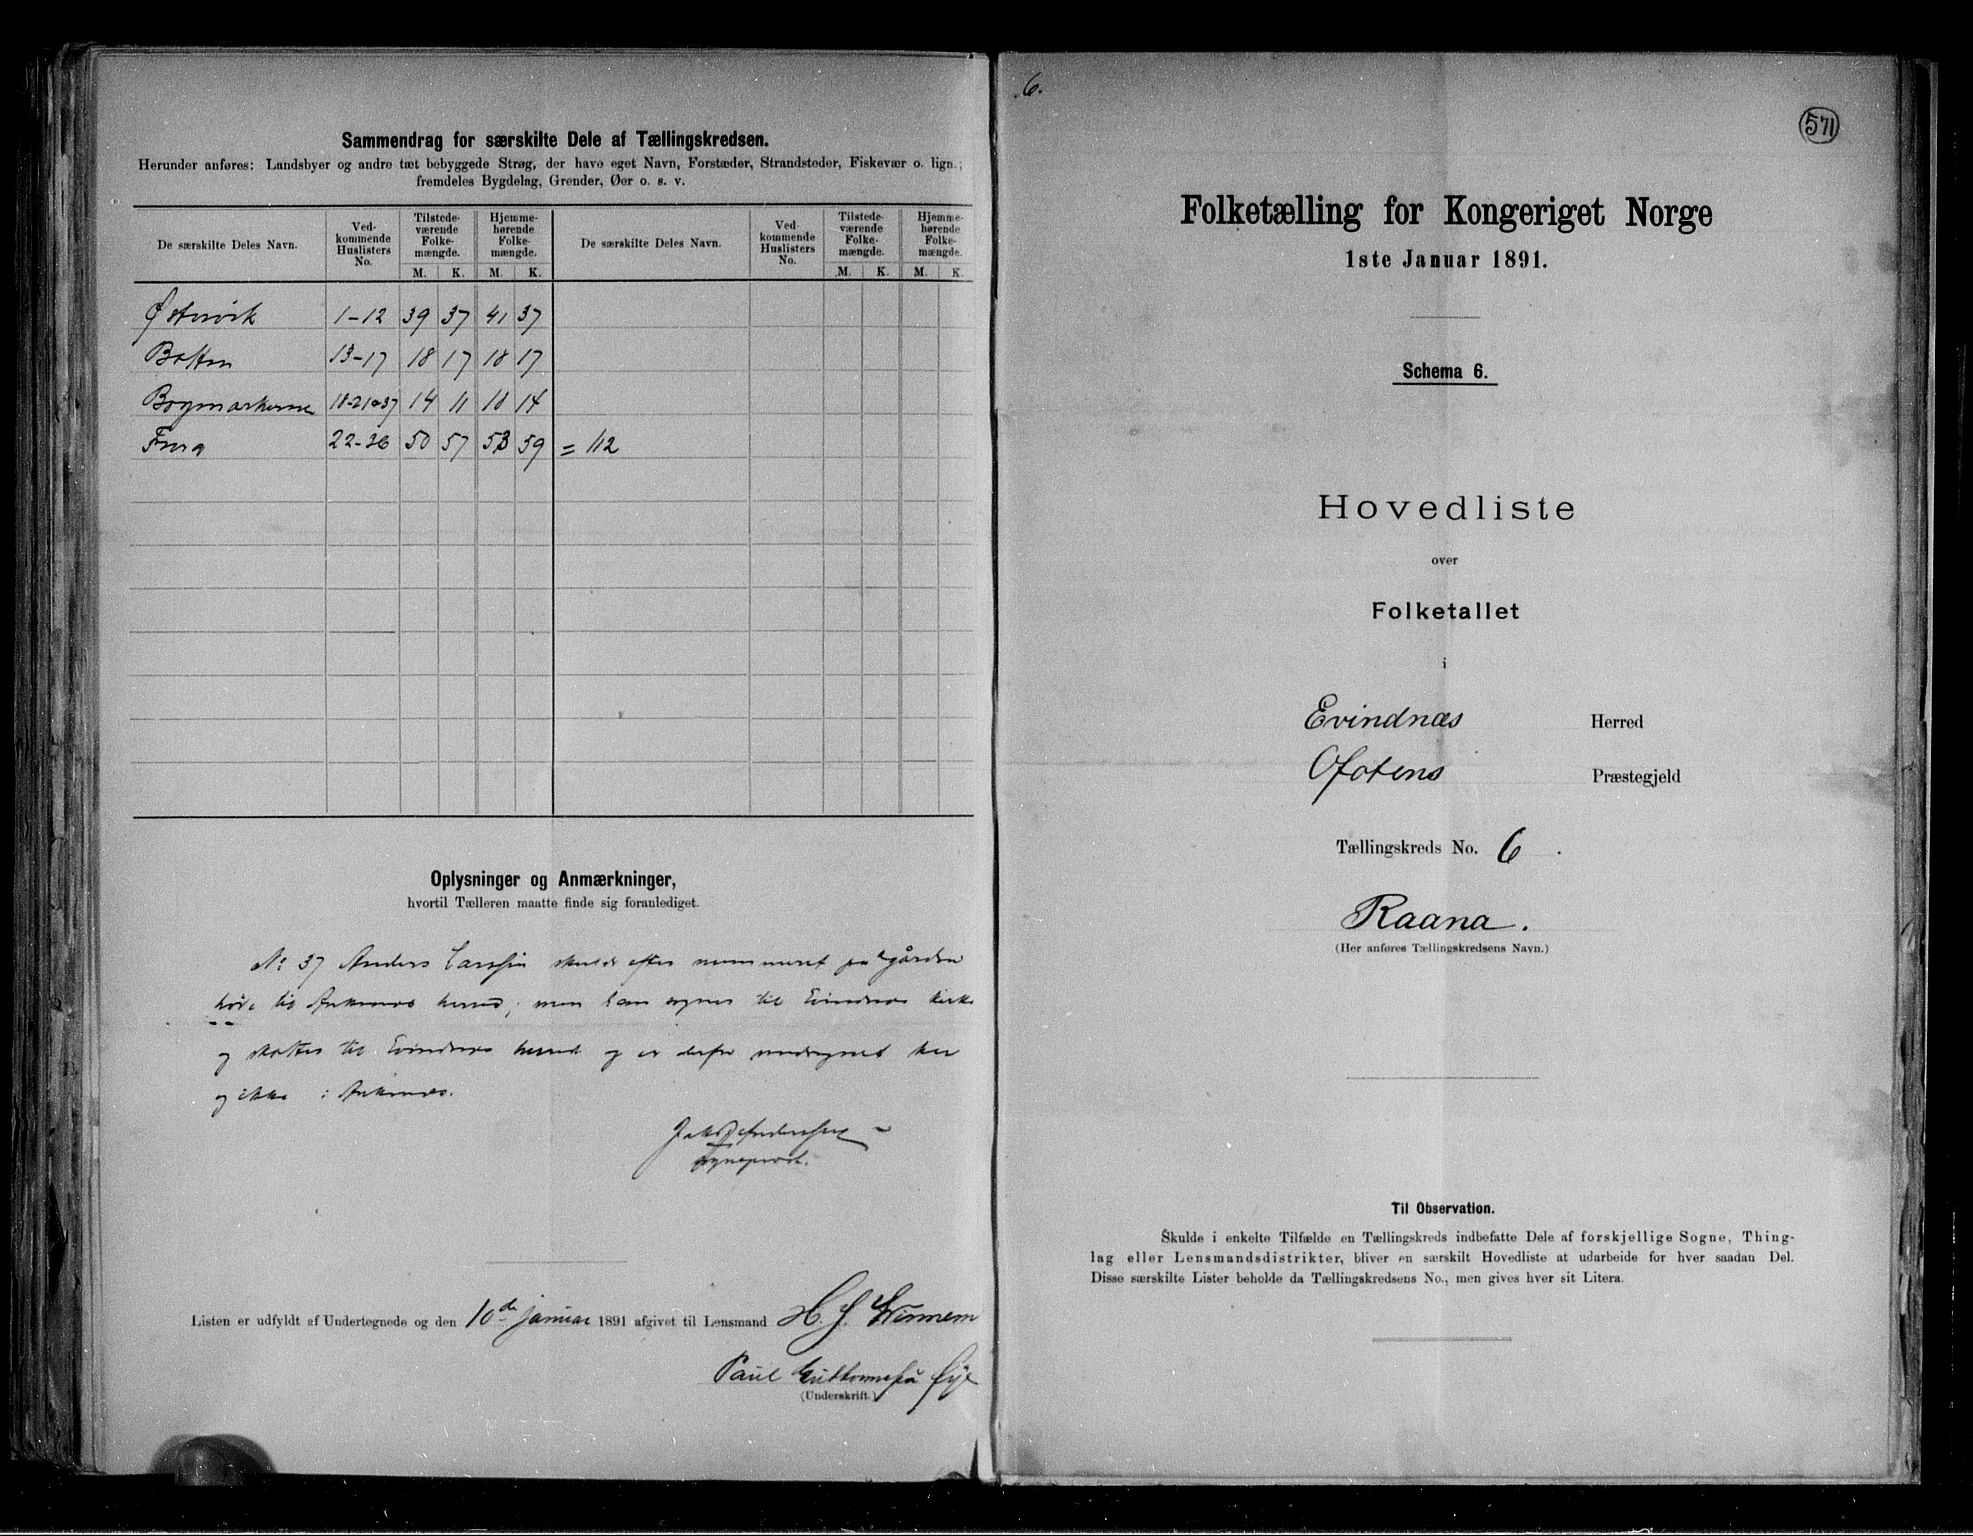 Sammendrag for særskilte Dele af Tællingskredsen.
Herunder anføres: Landsbyer og andre tæt bebyggede Strøg, der have eget Navn, Forstæder, Strandsteder, Fiskevær o. lign.;
fremdeles Bygdelag, Grender, Øer o. s. v.
De særskilte Deles Navn. Ved-kommende Huslisters No. Tilstede-værende Folke-mængde. Hjemme-hørende Folke-mængde. De særskilte Deles Navn. Ved-kommende Huslisters No. Tilstede-værende Folke-mængde. Hjemme-hørende Folke-mængde.
M. K. M. K. M. K. M. K.
Østervik 1-12 39 37 41 37
Botten 13-17 18 17 18 17
18-21 37 14 11 14
22-36 50 57 53 59 = 112
Oplysninger og Anmærkninger,
hvortil Tælleren maatte finde sig foranlediget.
No 37 Anders Larssen skulde efter nummeret på gården
høre til Ankenes herred, men han sogner til Evindnæs kirke
og skatter til Evindnæs herred og er derfor medregnet her
og ikke i Ankenes.
sogneprest.
Listen er udfyldt af Undertegnede og den 10de januar 1891 afgivet til Lensmand H. J.
Paul
(Underskrift.)
6.
571
Folketælling for Kongeriget Norge
1ste Januar 1891.
Schema 6.
Hovedliste
over
Folketallet
i
Evindnæs Herred
Ofotens Præstegjeld
Tællingskreds No. 6.
Raana.
(Her anføres Tællingskredsens Navn.)
Til Observation.
Skulde i enkelte Tilfælde en Tællingskreds indbefatte Dele af forskjellige Sogne, Thing-
lag eller Lensmandsdistrikter, bliver en særskilt Hovedliste at udarbeide for hver saadan Del.
Disse særskilte Lister beholde da Tællingskredsens No., men gives hver sit Litera.